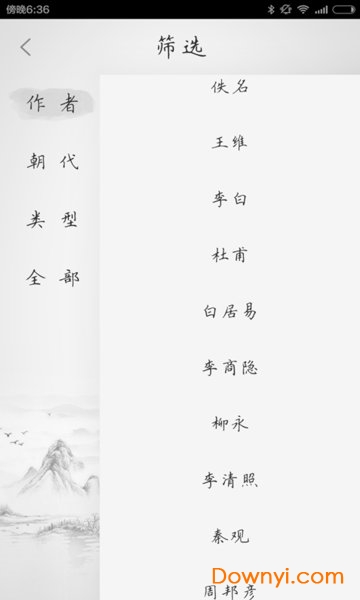 傍晚6:36
筛选
作者
朝代
类型
全部
佚名
王维
李白
杜甫
白居易
李商隐
柳永
李清照
秦观
周邦彦
Downyi.com